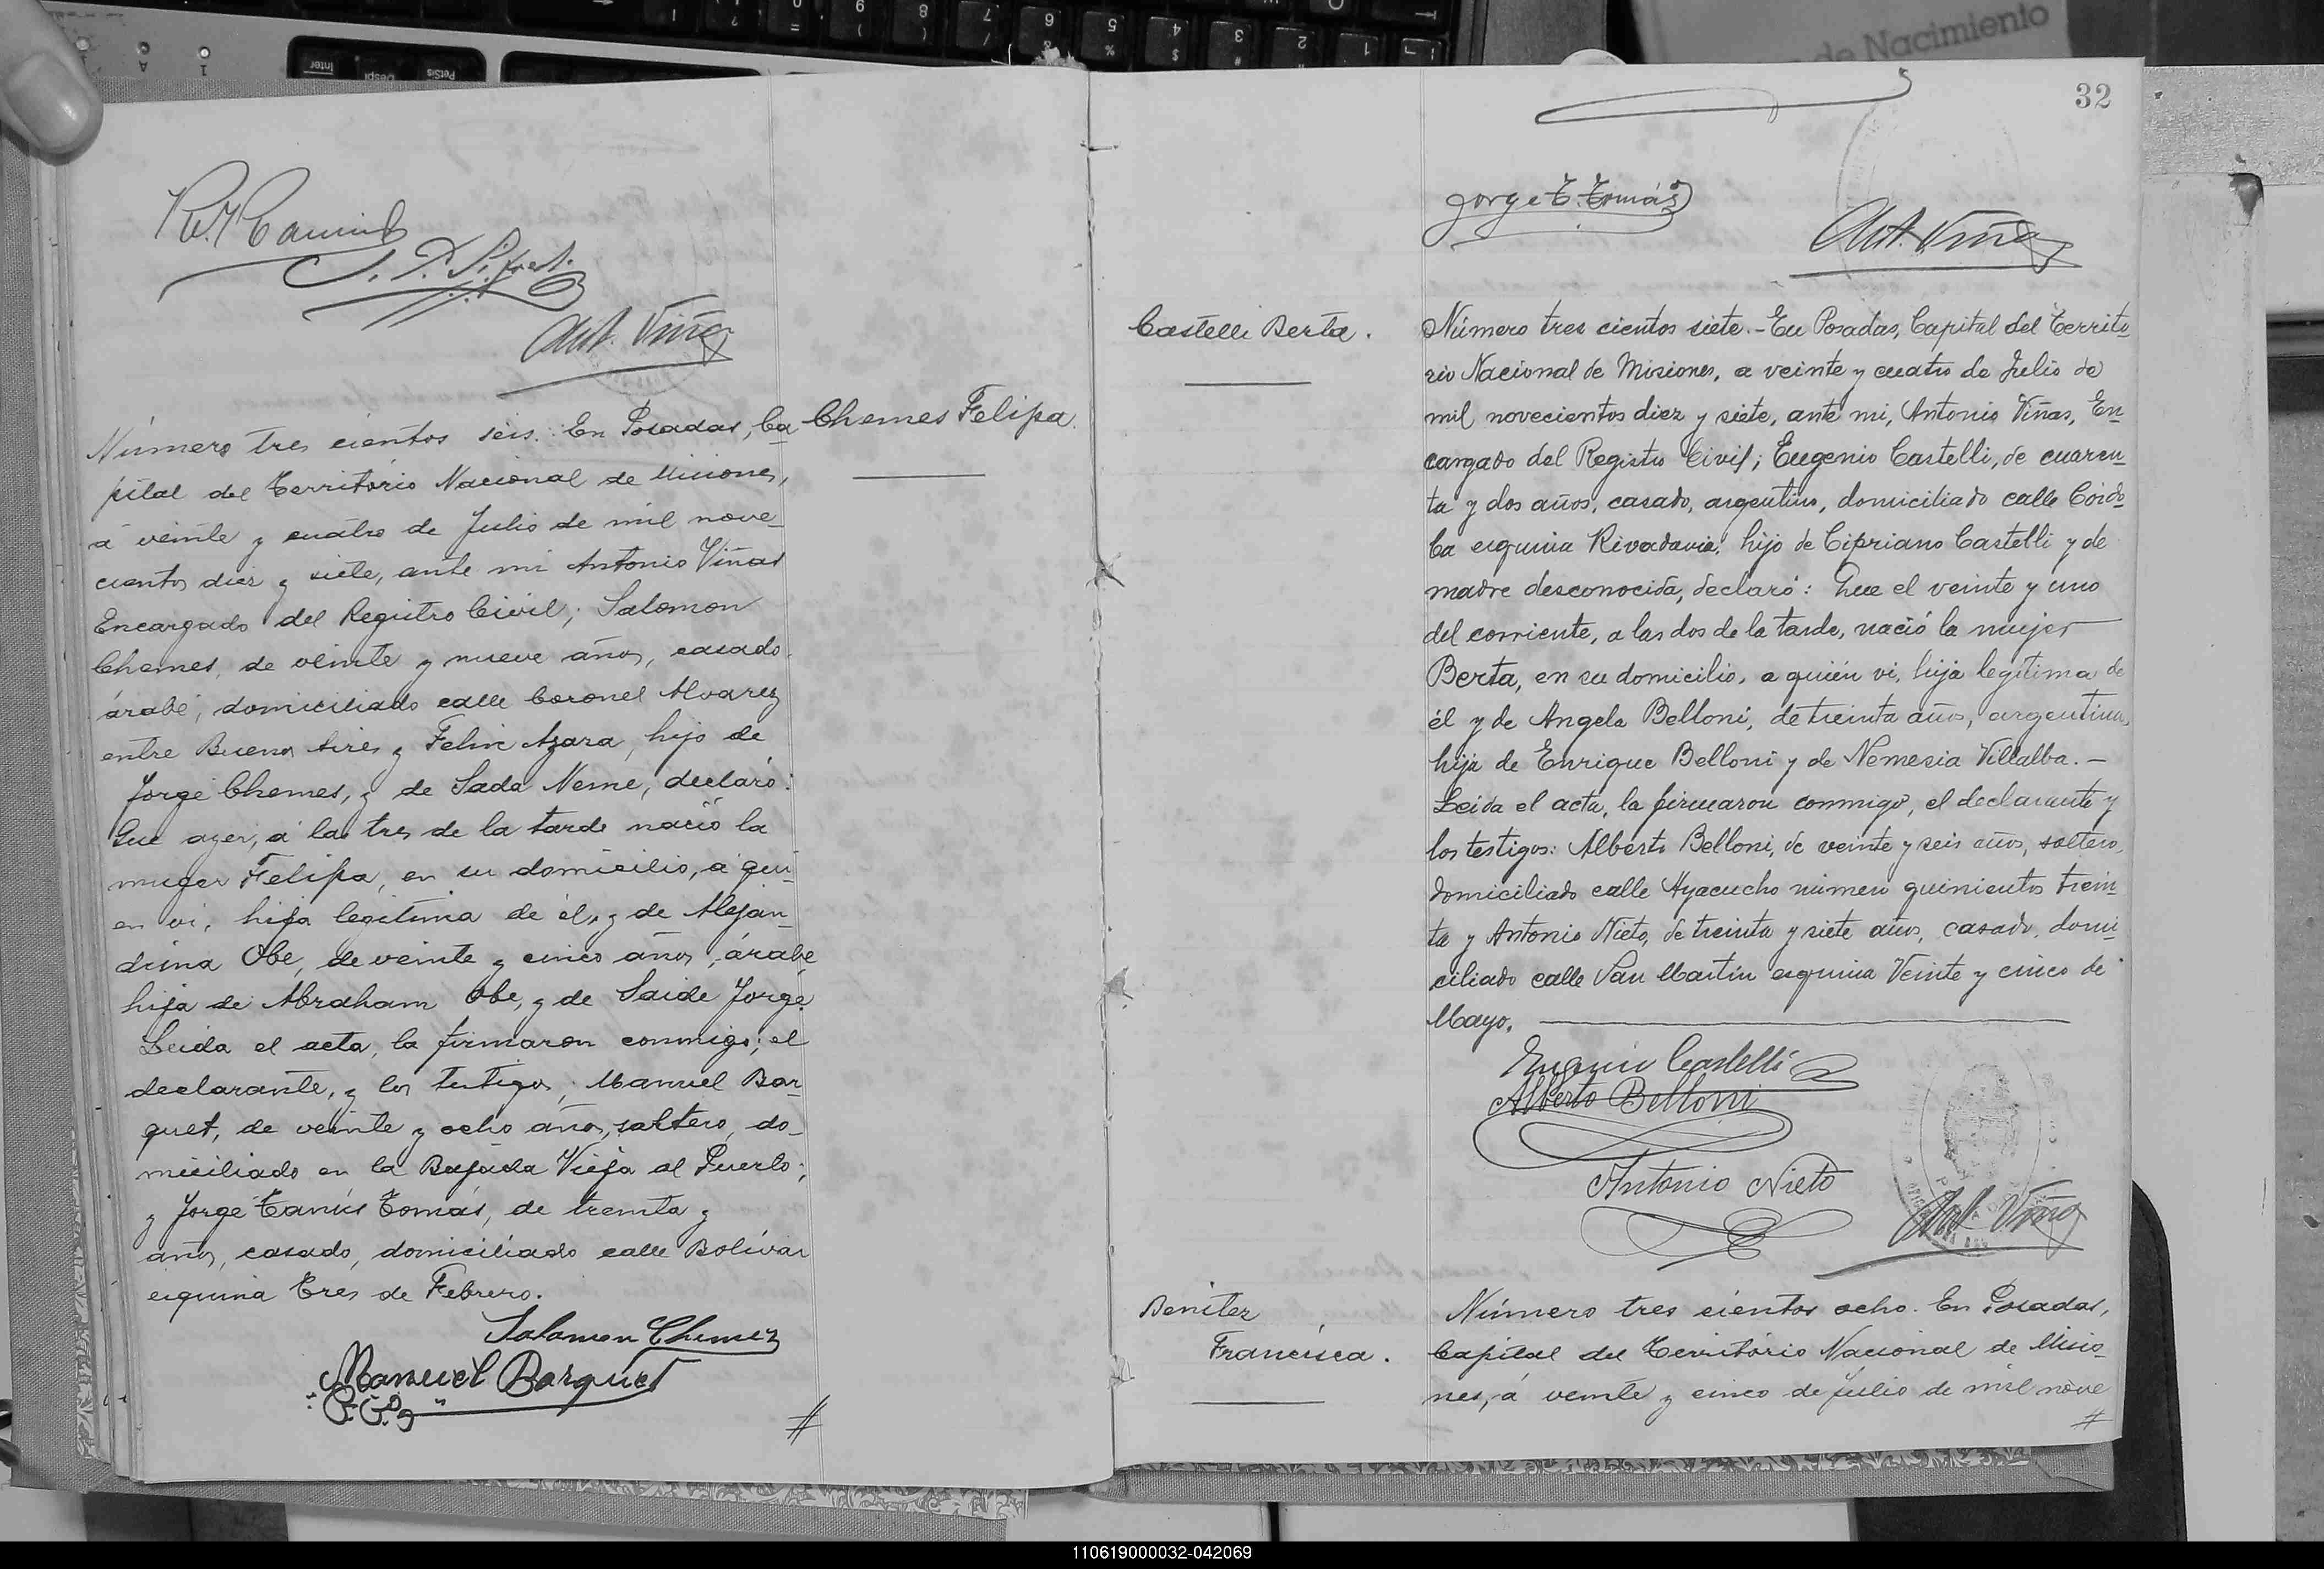 de Nacimiento
Ant. Viñas
Número tres cientos seis. En Posadas, Ca
pital del Territorio Nacional de Misiones,
á veinte y cuatro de Julio de mil nove
cientos diez y siete, ante mi Antonio Viñas
Encargado del Registro Civil; Salomon
Chemes, de veinte y nueve años, casado
árabe, domiciliado calle Coronel Alvarez
entre Buenos Aires y Felix Azara, hijo de
Jorge Chemes, y de Sada Neme, declaró:
Que ayer, á las tres de la tarde nació la
muger Felipa, en su domicilio, á qui-
en vi, hija legitima de él, y de Alejan-
drina Obe, de veinte y cinco años, árabe
hija de Abraham Obe, y de Saide Jorge.
Leida el acta, la firmaron conmigo; el
declarante, y los testigos; Manuel Bar-
quet, de veinte y ocho años, soltero, do-
miciliado en la Bajada Vieja al Puerto;
y Jorge Tanús Tomás, de treinta y
años, casado, domiciliado calle Bolívar
esquina Tres de Febrero.
Salomon Chemez
Manuel Barquet
#
Chemes Felipa
32
Jorge T. Tomás
Ant. Viñas
Castelli Berta.
Número tres cientos siete.- En Posadas, Capital del Territo
rio Nacional de Misiones, a veinte y cuatro de Julio de
mil novecientos diez y siete, ante mi, Antonio Viñas, En
cargado del Registro Civil; Eugenio Castelli, de cuaren
ta y dos años, casado, argentino, domiciliado calle Córdo
ba esquina Rivadavia, hijo de Cipriano Castelli y de
madre desconocida, declaró: Que el veinte y uno
del corriente, a las dos de la tarde, nació la mujer
Berta, en su domicilio, a quién vi, hija legítima de
él y de Angela Belloni, de treinta años, argentina,
hija de Enrique Belloni y de Nemesia Villalba.-
Leida el acta, la firmaron conmigo, el declarante y
los testigos: Alberto Belloni, de veinte y seis años, soltero,
domiciliado calle Ayacucho número quinientos trein
ta y Antonio Nieto, de treinta y siete años, casado, domi
ciliado calle San Martín esquina Veinte y cinco de
Mayo.
Eugenio Castelli
Alberto Belloni
Antonio Nieto
Ant. Viñas
Benitez
Francisca.
Número tres cientos ocho. En Posadas,
Capital del Territorio Nacional de Misio
nes, á veinte y cinco de Julio de mil nove
#
110619000032-042069